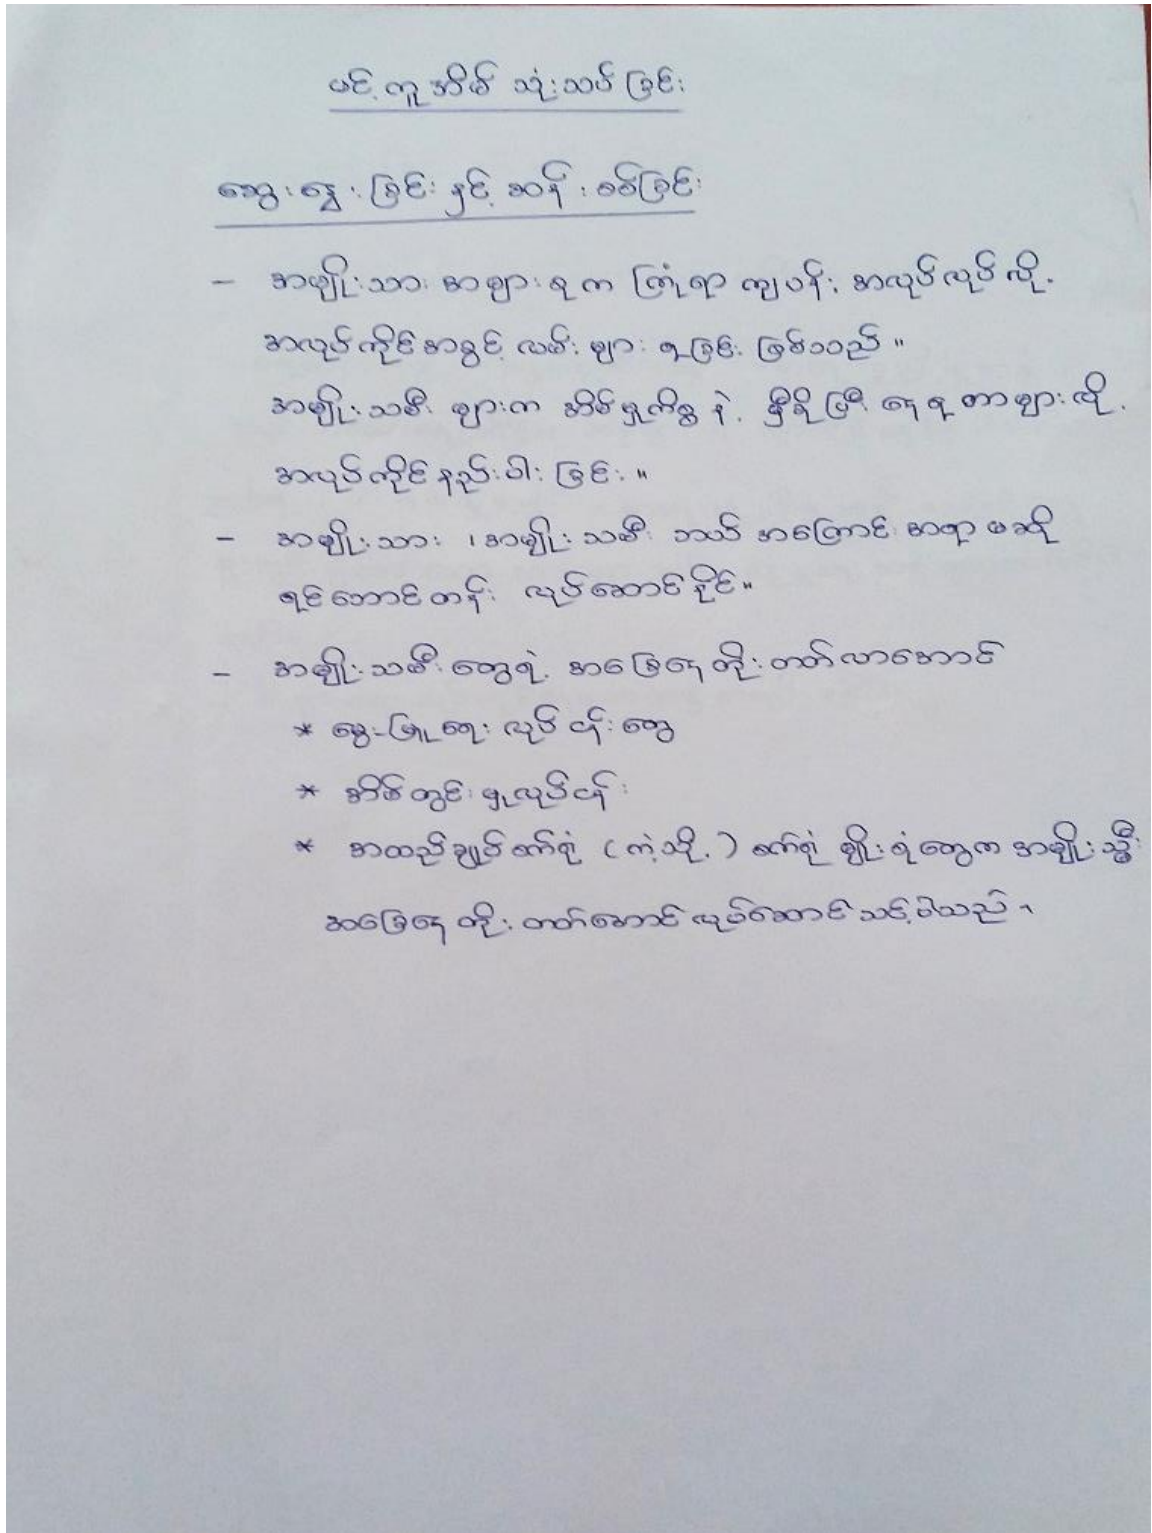 ပင့်ကူအိမ် သုံးသပ်ခြင်း
ဆွေးနွေးခြင်းနှင့် ဆန်းစစ်ခြင်း
- အမျိုးသား အများစုက ကြုံရာကျပန်း အလုပ်လုပ်လို့
အလုပ်ကိုင်အခွင့်လမ်းများ ရခြင်းဖြစ်သည်။
အမျိုးသမီးများက အိမ်မှုကိစ္စနဲ့ မှီခိုပြီးနေရတာများလို့
အလုပ်ကိုင်နည်းပါးခြင်း။
- အမျိုးသား ၊ အမျိုးသမီး ဘယ်အကြောင်းအရာမဆို
ရင်ဘောင်တန်း လုပ်ဆောင်နိုင်။
- အမျိုးသမီးတွေရဲ့ အခြေနေတိုးတတ်လာအောင်
* မွေးမြူရေးလုပ်ငန်းတွေ
* အိမ်တွင်းမှုလုပ်ငန်း
* အထည်ချုပ်စက်ရုံ (ကဲ့သို့) စက်ရုံမျိုးရုံတွေက အမျိုးသ္မီး
အခြေနေတိုးတတ်အောင် လုပ်ဆောင်သင့်ပါသည်၊